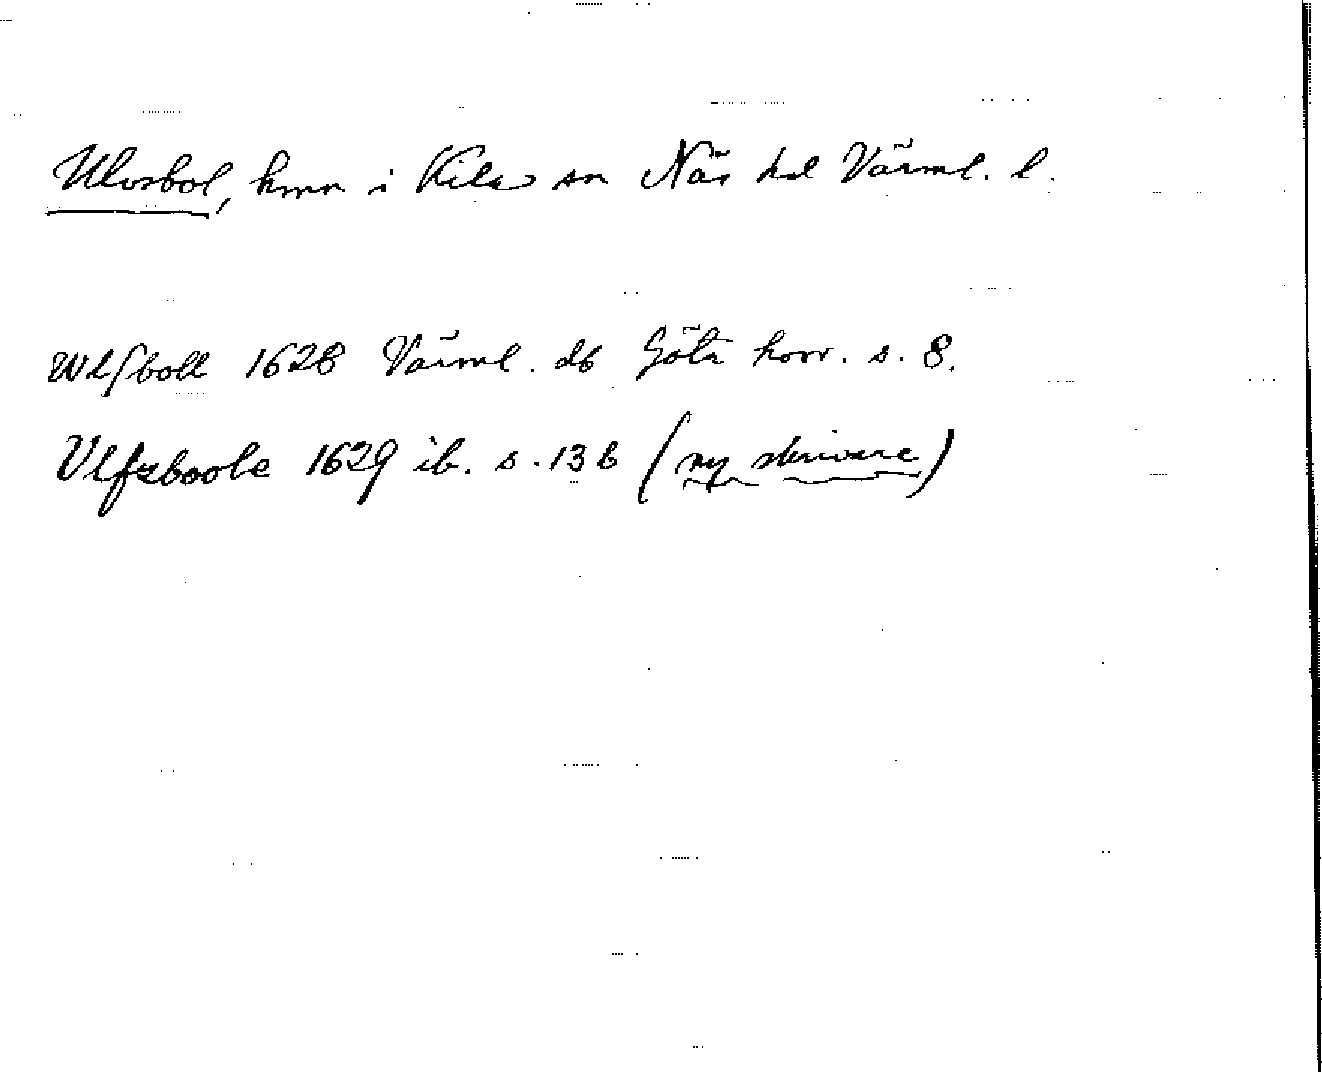 Ulvsbol, hmn i Kila sn Näs hd Värml. l.
Wlfboll 1628 Värml. db Göta hovr. s. 8.
Vlfzboole 1629 ib. s. 13 b (ny skrivare)